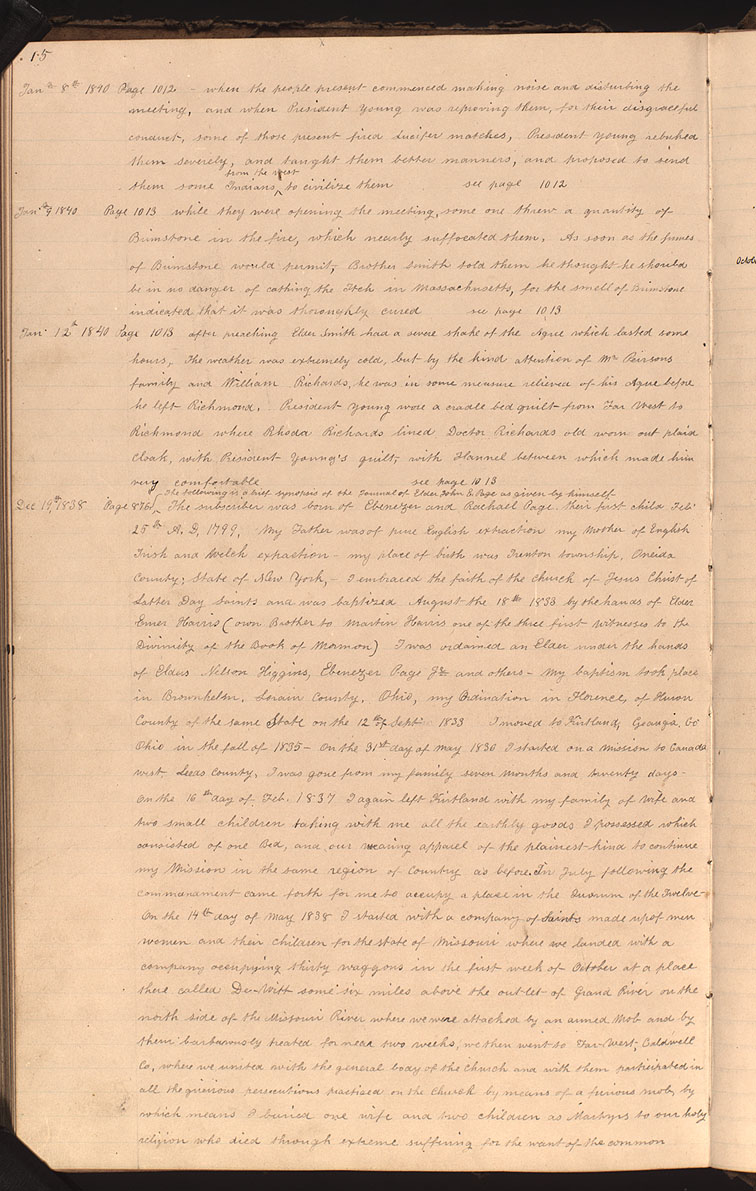 15
Jany 8th 1840 Page 1012 - when the people present commenced making noise and disturbing the
meeting, and when President Young was reproving them, for their disgraceful
conduct, some of those present fired Lucifer matches, President Young rebuked
them severely, and taught them better manners, and proposed to send
from the west
them some Indians ^ to civilize them see page 1012
Jany 9 1840 Page 1013 while they were opening the meeting, some one threw a quantity of
Brimstone in the fire, which nearly suffocated them. As soon as the fumes
of Brimstone would permit, Brother Smith told them he thought he should
be in no danger of cathing the Itch in Massachusetts, for the smell of Brimstone
indicated that it was thoroughly cured see page 1013
Jany 12th 1840 Page 1013 after preaching Elder Smith had a severe shake of the Ague which lasted some
hours, The weather was extremely cold, but by the kind attention of Mr Peirsons
family and William Richards, he was in some measure relieved of his Ague before
he left Richmond. President Young wore a cradle bed quilt from Far West to
Richmond where Rhoda Richards lined Doctor Richards old worn out plaid
cloak, with President Young's quilt, with Flannel between which made him
very comfortable see page 1013
The following is a brief synopsis of the Journal of Elder John E Page as given by himself
Dec 19th 1838 Page 876 The subscriber was born of Ebenezer and Rachall Page. their first child Feb
25th A. D, 1799. My Father was of pure English extraction my Mother of English
Irish and Welch extraction - my place of birth was Trenton township, Oneida
County, State of New York, - I embraced the faith of the church of Jesus Christ of
Latter Day Saints and was baptized August the 18th 1833 by the hands of Elder
Emer Harris (own Brother to Martin Harris one of the three first witnesses to the
Divinity of the Book of Mormon) I was ordained an Elder under the hands
of Elders Nelson Higgins, Ebenezer Page Jr and others - My baptism took place
in Brownhelm, Lorain County, Ohio, my Ordination in Florence, of Huron
County of the same State on the 12th of Septr 1833 I moved to Kirtland, Geauga, Co
Ohio in the fall of 1835 - On the 31st day of May 1836 I started on a Mission to Canada
west, Leeds County, I was gone from my family seven months and twenty days -
On the 16th day of Feb. 1837 I again left Kirtland with my family of wife and
two small children taking with me all the earthly goods I possessed which
consisted of one Bed, and our wearing apparel of the plainest kind to continue
my Mission in the same region of Country as before. In July following the
commandment came forth for me to occupy a place in the Quorum of the Twelve -
On the 14th day of May 1838 I started with a company of Saints made up of men
women and their children for the state of Missouri where we landed with a
company occupying thirty waggons in the first week of October at a place
there called De-Witt some six miles above the out-let of Grand River on the
north side of the Missouri River where we were attacked by an armed Mob and by
them barbarously treated for near two weeks, we then went to Far-West, Caldwell
Co, where we united with the general body of the Church and with them participated in
all the grievous persecutions practised on the Church by means of a furious mob, by
which means I buried one wife and two children as Martyrs to our holy
religion who died through extreme suffering for the want of the common